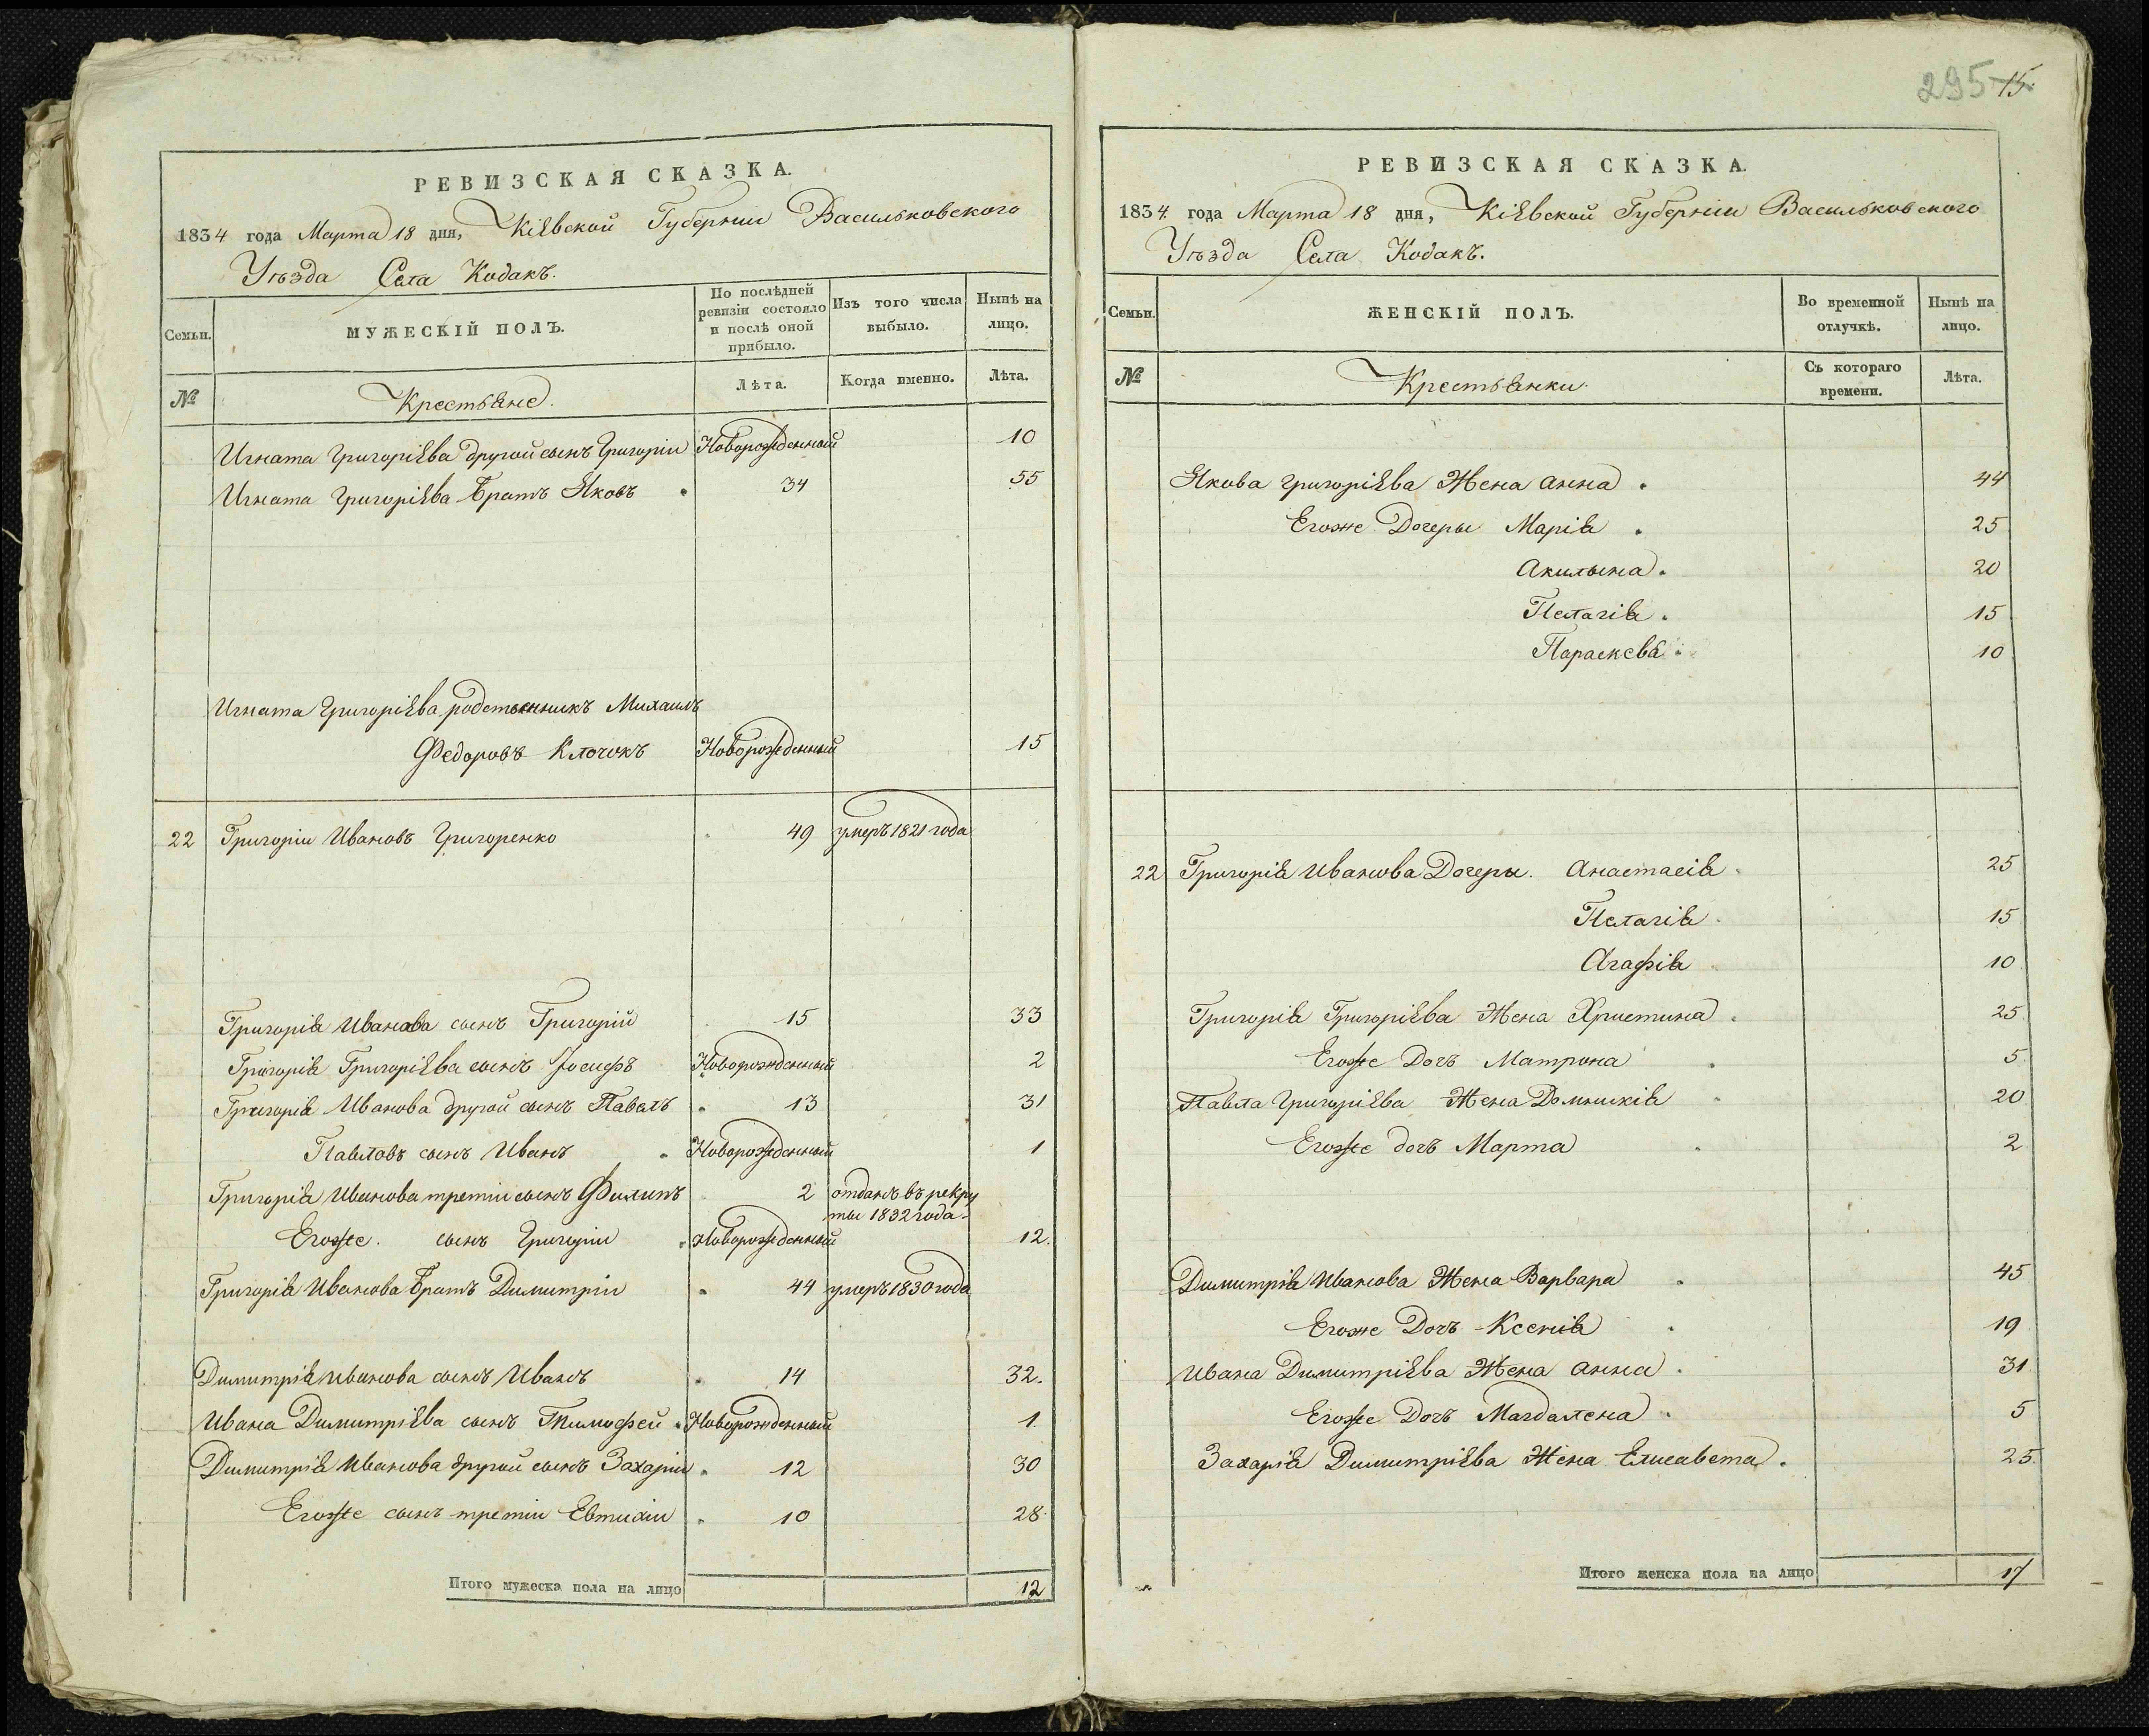 РЕВИЗСКАЯ СКАЗКА.
1834 года Марта 18 дня, Кіевской Губерніи Васильковского
Уѣзда Села Кодакъ.
Семьи.
МУЖЕСКІЙ ПОЛЪ.
По послѣдней ревизіи состояло и послѣ оной прибыло.
Изъ того числа выбыло.
Нынѣ на лицо.
№
Крестьяне.
Лѣта.
Когда именно.
Лѣта.
Игната Григоріева другой сынъ Григоріи Новорожденный 10
Игната Григоріева Братъ Яковъ 34 55
Игната Григоріева родственникъ Михаилъ
Федоровъ Клочокъ Новорожденный 15
22 Григоріи Ивановъ Григоренко 49 умеръ 1821 года
Григорія Иванова сынъ Григорій 15 33
Григорія Григоріева сынъ Іосифъ Новорожденный 2
Григорія Иванова другой сынъ Павелъ 13 31
Павловъ сынъ Иванъ Новорожденный 1
Григорія Иванова третіи сынъ Филипъ 2 отданъ въ рекру
ты 1832 года
Егоже. сынъ Григоріи Новорожденный 12.
Григорія Иванова Братъ Димитріи 44 умеръ 1830 года
Димитрія Иванова сынъ Иванъ 14 32.
Ивана Димитріева сынъ Тимофей Новорожденный 1.
Димитрія Иванова другой сынъ Захаріи 12 30
Егоже сынъ третіи Евтихіи 10 28.
Итого мужеска пола на лицо 12
295 15.
РЕВИЗСКАЯ СКАЗКА.
1834 года Марта 18 дня, Кіевской Губерніи Васильковского
Уѣзда Села Кодакъ.
Семьи.
ЖЕНСКІЙ ПОЛЪ.
Во временной отлучкѣ.
Нынѣ на лицо.
№
Крестьянки.
Съ котораго времени.
Лѣта.
Якова Григоріева Жена Анна 44
Егоже Дочеры Марія 25
Акилына 20
Пелагія 15
Параскева 10
22 Григорія Иванова Дочеры. Анастасія 25
Пелагія 15
Агафія 10
Григорія Григоріева Жена Христина 25
Егоже Дочъ Матрона 5
Павла Григоріева Жена Домникія 20
Егоже дочъ Марта 2
Димитрія Иванова Жена Варвара 45
Егоже Дочъ Ксенія 19
Ивана Димитріева Жена Анна 31
Егоже Дочъ Магдалена 5
Захарія Димитріева Жена Елисавета 25.
Итого женска пола на лицо 17